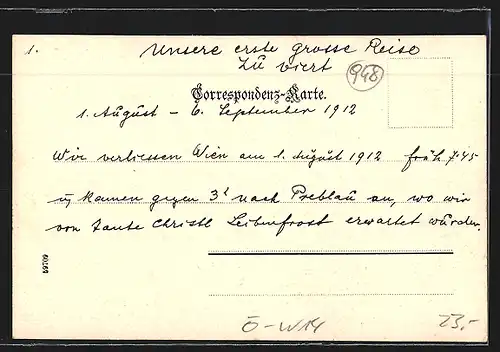 1. Unsere erste grosse Reise
zu viert
948
Correspondenz-Karte.
1. August - 6. September 1912
Wir verliessen Wien am 1. August 1912 früh 7.45
u. kamen gegen 3h nach Preblau an, wo wir
von Tante Christl Leibenfrost erwartet wurden.
59709
Ö-W14
23.-